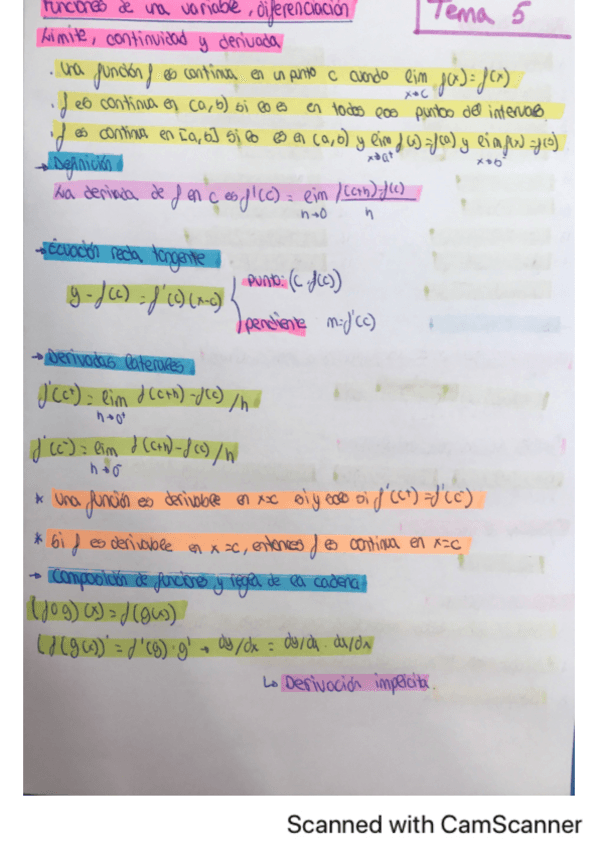 Funciones de una variable, diferenciación
Tema 5
Límite, continuidad y derivada
. Una función f es continua en un punto c cuando lim f(x)=f(x)
x→c
. f es continua en (a,b) si lo es en todos los puntos del intervalo.
. f es continua en [a,b] si lo es en (a,b) y lim f(x)=f(a) y lim f(x)=f(b)
x→a⁺ x→b⁻
→ Definición
La derivada de f en c es f'(c) = lim f(c+h)-f(c)
h→0 h
→ Ecuación recta tangente
punto: (c, f(c))
y - f(c) = f'(c)(x-c)
pendiente m=f'(c)
→ Derivadas laterales
f'(c⁺) = lim f(c+h)-f(c)/h
h→0⁺
f'(c⁻) = lim f(c+h)-f(c)/h
h→0⁻
* Una función es derivable en x=c si y solo si f'(c⁺)=f'(c⁻)
* Si f es derivable en x=c, entonces f es continua en x=c
→ Composición de funciones y regla de la cadena
(f∘g)(x)=f(g(x))
(f(g(x))'=f'(g)·g' → dy/dx = dy/du · du/dx
↳ Derivación implícita.
Scanned with CamScanner